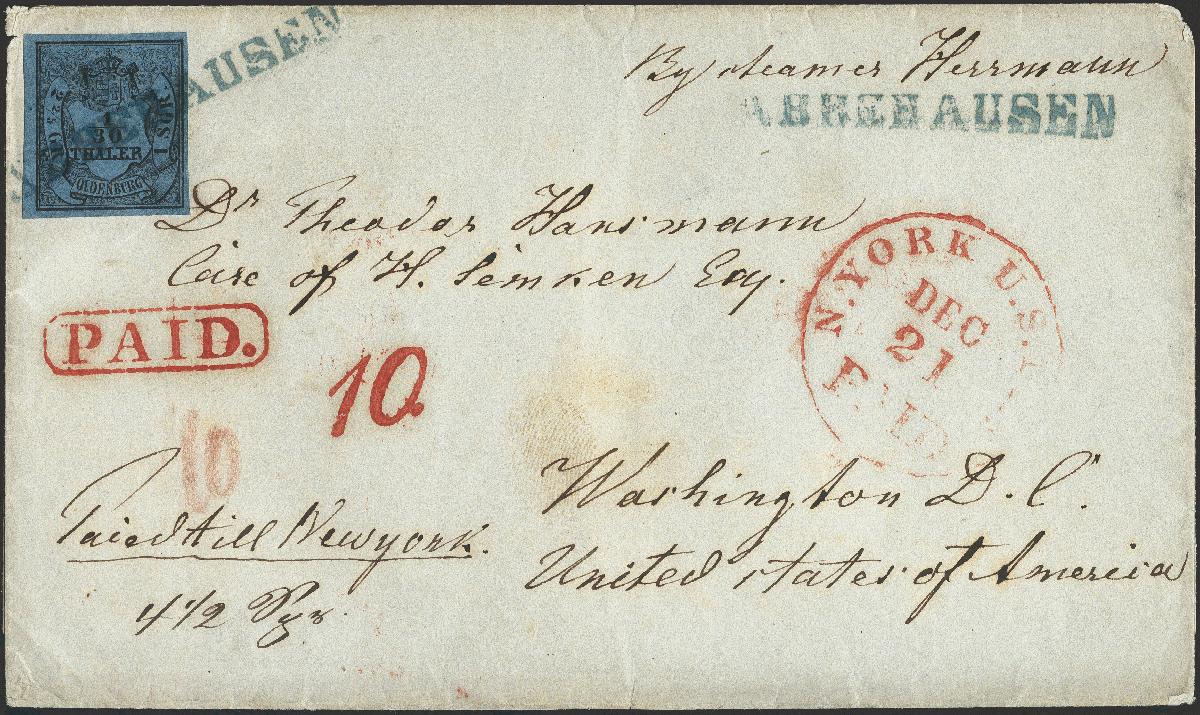 HAUSEN
By steamer Herrmann
ABBEHAUSEN
1
30
THALER
OLDENBURG
Dr Theodor Hansmann
Care of H. Semken Esq.
N. YORK U.S.
DEC
21
PAID
PAID.
10
10
Washington D.C.
Paied till Newyork.
United states of America
4 1/2 Sgr.